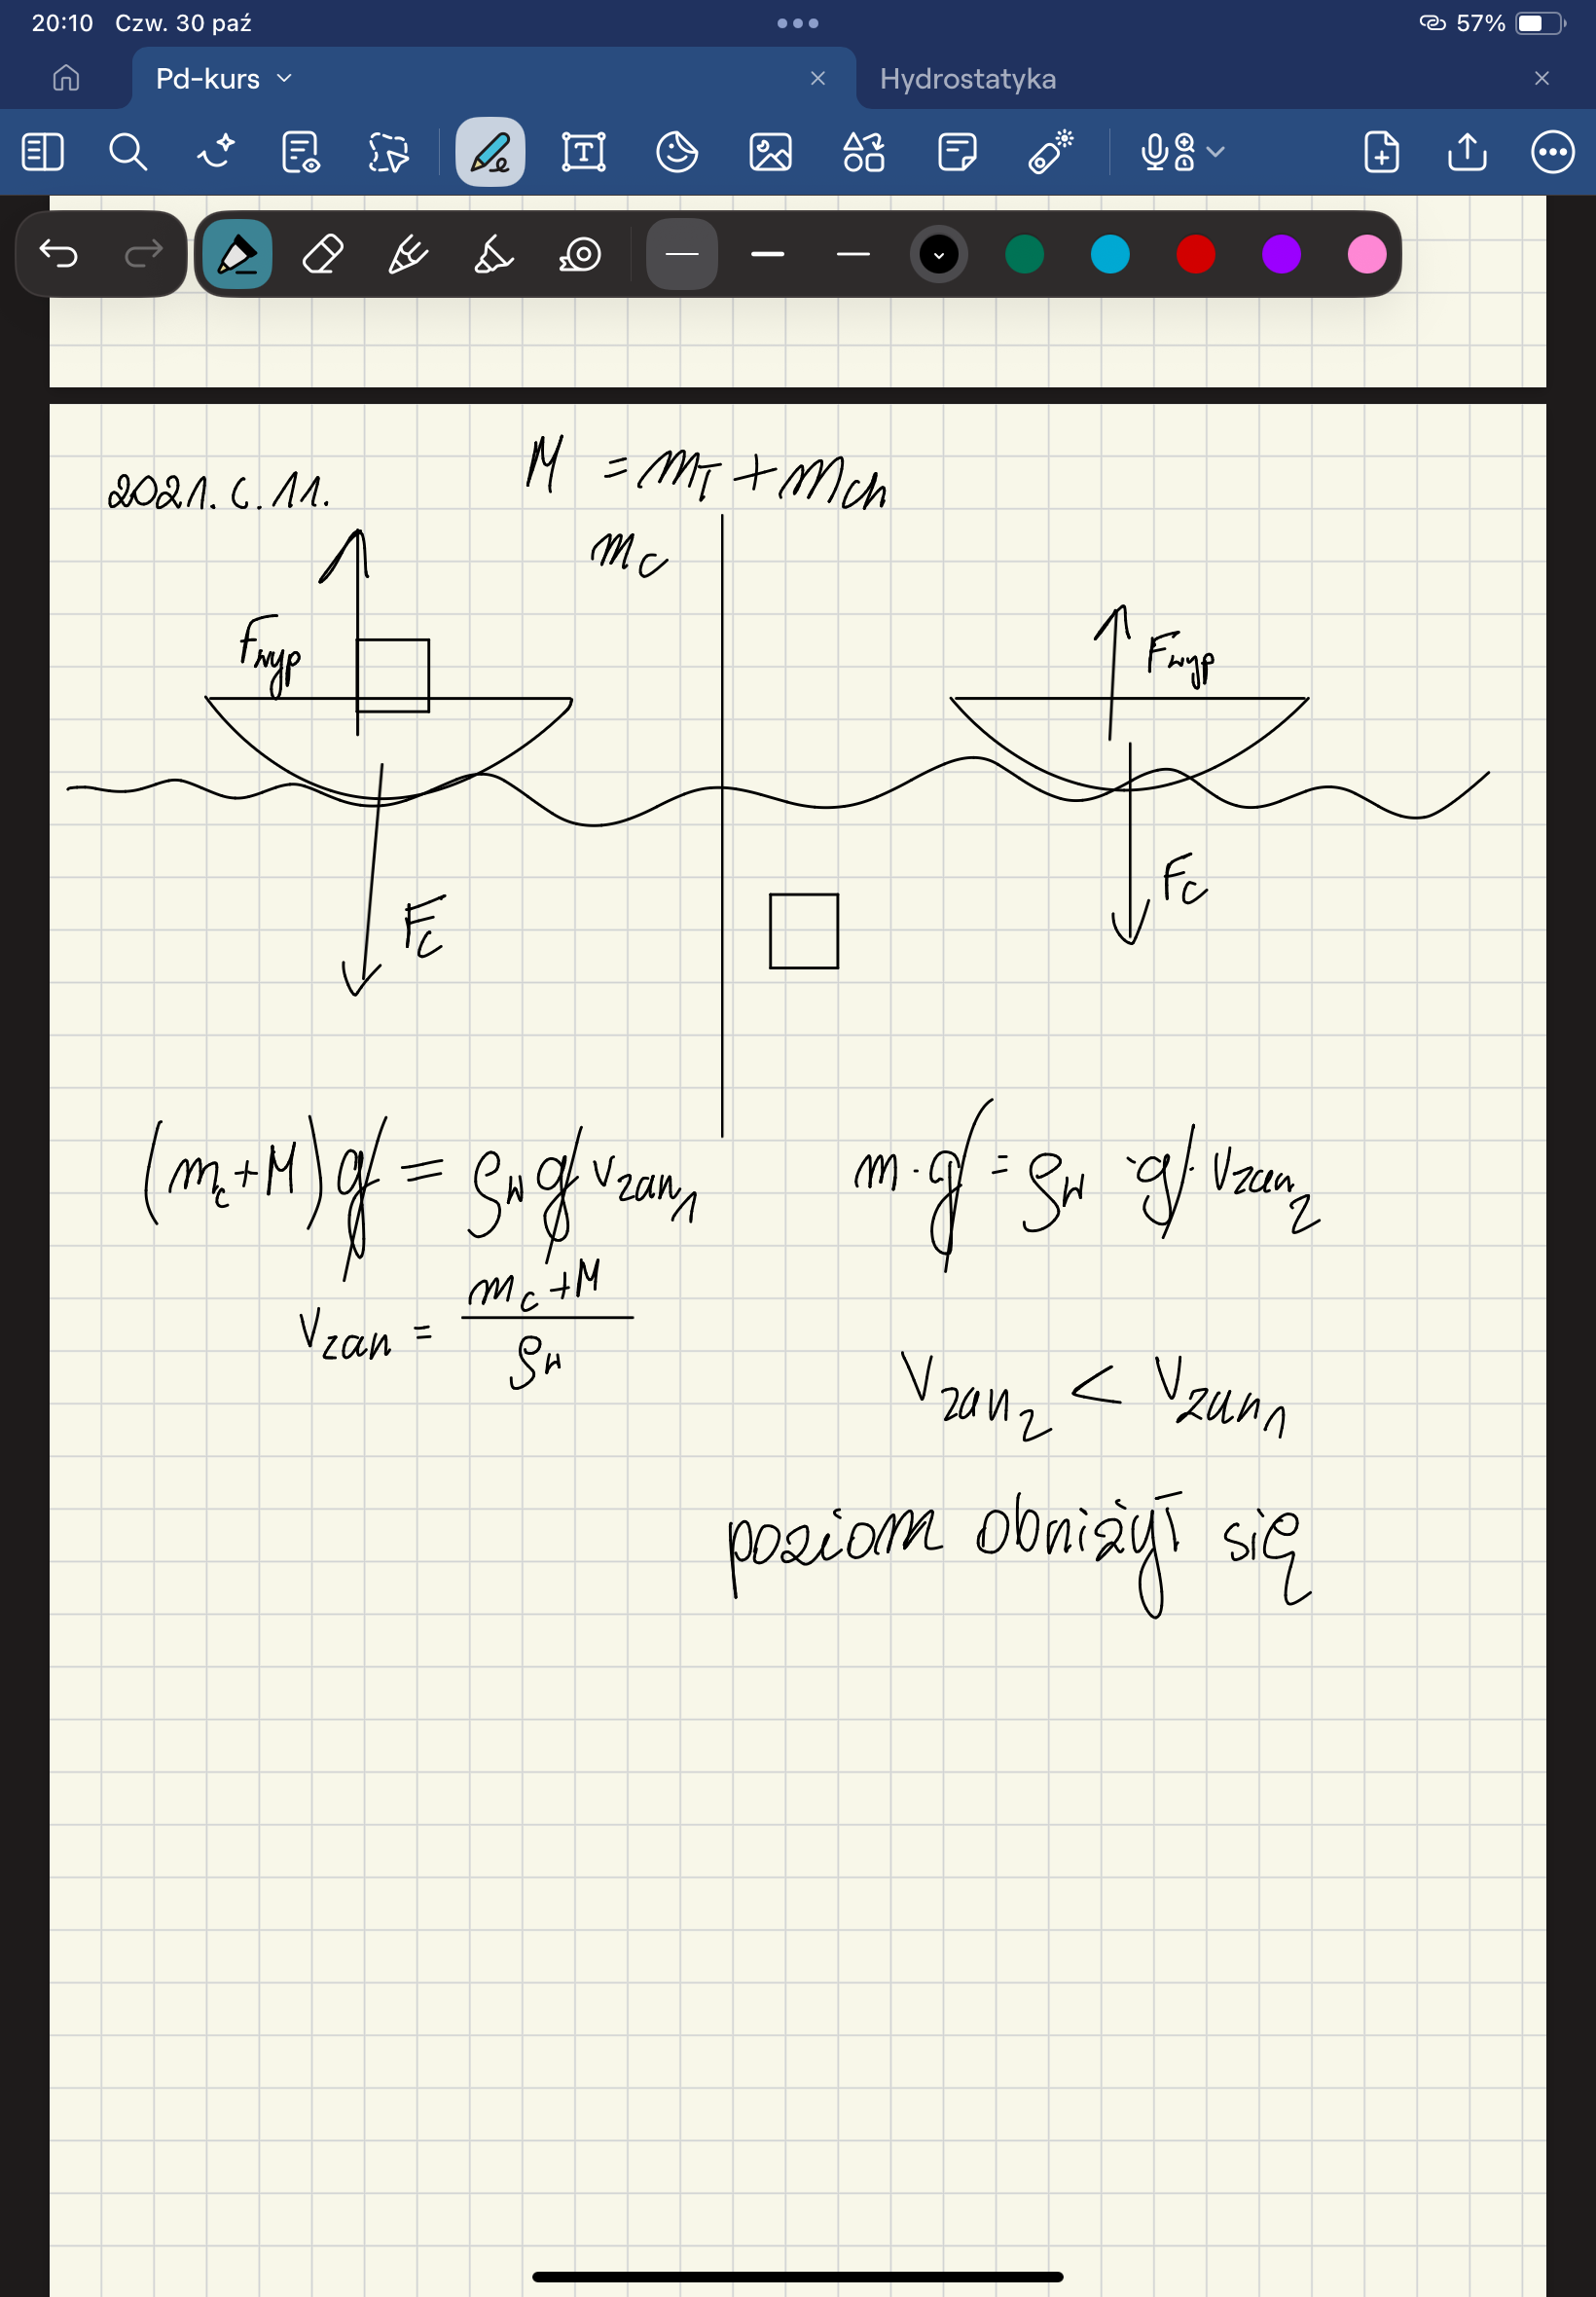 20:10 Czw. 30 paź 57%
Pd-kurs Hydrostatyka
2021.C.11. M = mT + mch
mc
Fwyp Fwyp
Fc Fc
(mc+M)g = ρw g Vzan1 m·g = ρw ·g· Vzan2
Vzan = mc+M / ρw
Vzan2 < Vzan1
poziom obniżył się